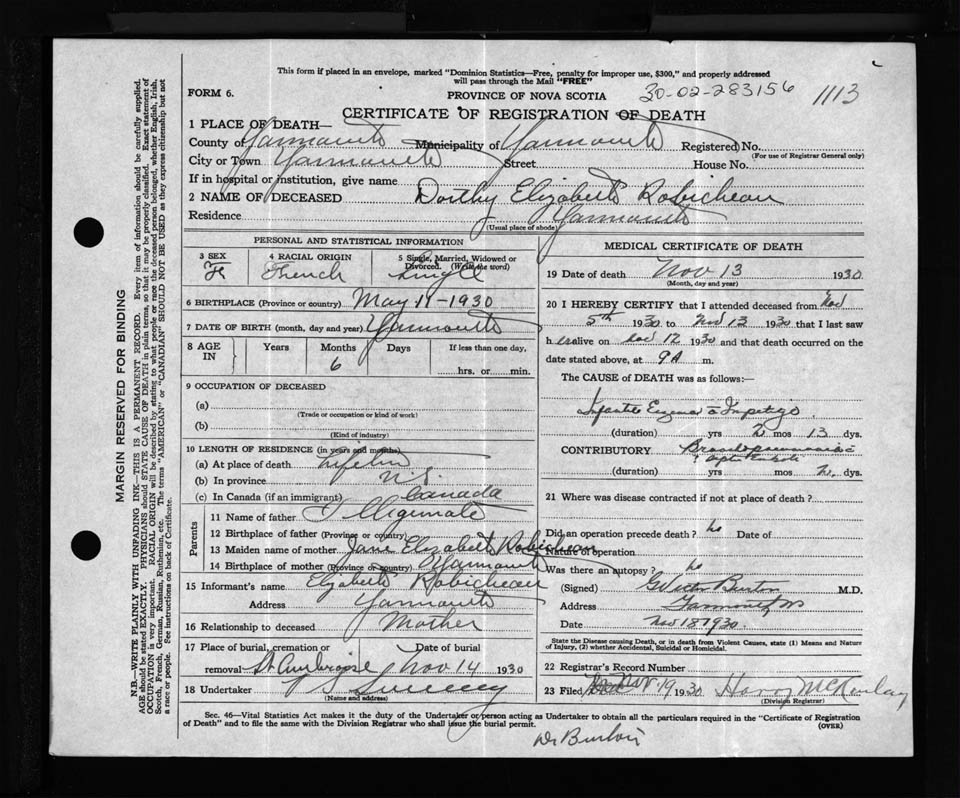 This form if placed in an envelope, marked "Dominion Statistics—Free, penalty for improper use, $300," and properly addressed
will pass through the Mail "FREE"
FORM 6.
PROVINCE OF NOVA SCOTIA
30-02-283156
1113
CERTIFICATE OF REGISTRATION OF DEATH
1 PLACE OF DEATH—
County of Yarmouth Municipality of Yarmouth Registered No.
(For use of Registrar General only)
City or Town Yarmouth Street House No.
If in hospital or institution, give name
2 NAME OF DECEASED Dorthy Elizabeth Robicheau
Residence Yarmouth
(Usual place of abode)
PERSONAL AND STATISTICAL INFORMATION
3 SEX F
4 RACIAL ORIGIN French
5 Single, Married, Widowed or Divorced. (Write the word) Single
6 BIRTHPLACE (Province or country) May 11-1930
7 DATE OF BIRTH (month, day and year) Yarmouth
8 AGE IN Years Months 6 Days If less than one day, hrs. or min.
9 OCCUPATION OF DECEASED
(a)
(Trade or occupation or kind of work)
(b)
(Kind of industry)
10 LENGTH OF RESIDENCE (in years and months)
(a) At place of death lifetime
(b) In province N.S.
(c) In Canada (if an immigrant) Canada
Parents
11 Name of father Illigemate
12 Birthplace of father (Province or country)
13 Maiden name of mother Jane Elizabeth Robicheau
14 Birthplace of mother (Province or country) Yarmouth
15 Informant's name Elizabeth Robicheau
Address Yarmouth
16 Relationship to deceased Mother
17 Place of burial, cremation or removal St Ambroise Date of burial Nov 14 1930
18 Undertaker
(Name and address)
MEDICAL CERTIFICATE OF DEATH
19 Date of death Nov 13 1930
(Month, day and year)
20 I HEREBY CERTIFY that I attended deceased from Nov
5th 1930 to Nov 13 1930 that I last saw
h er alive on Nov 12 1930 and that death occurred on the
date stated above, at 9 A m.
The CAUSE of DEATH was as follows:—
Infantile Eczema Impetigo
(duration) yrs 2 mos 13 dys.
CONTRIBUTORY
(duration) yrs mos dys.
21 Where was disease contracted if not at place of death?
Did an operation precede death? no Date of
Nature of operation
Was there an autopsy? no
(Signed) Burton M.D.
Address Yarmouth NS
Date Nov 18 1930
State the Disease causing Death, or in death from Violent Causes, state (1) Means and Nature
of Injury, (2) whether Accidental, Suicidal or Homicidal.
22 Registrar's Record Number
23 Filed Nov 19 1930 Harry McKinlay
(Division Registrar)
Sec. 46—Vital Statistics Act makes it the duty of the Undertaker or person acting as Undertaker to obtain all the particulars required in the "Certificate of Registration
of Death" and to file the same with the Division Registrar who shall issue the burial permit.
(OVER)
Dr Burton
MARGIN RESERVED FOR BINDING
N.B.—WRITE PLAINLY WITH UNFADING INK—THIS IS A PERMANENT RECORD. Every item of information should be carefully supplied.
AGE should be stated EXACTLY. PHYSICIANS should STATE CAUSE OF DEATH in plain terms, so that it may be properly classified. Exact statement of
OCCUPATION is very important. RACIAL ORIGIN will be described by stating to what people or race the deceased person belonged, whether English, Irish,
Scotch, French, German, Russian, Ruthenian, etc. The terms "AMERICAN" or "CANADIAN" SHOULD NOT BE USED as they express citizenship but not
a race or people. See instructions on back of Certificate.